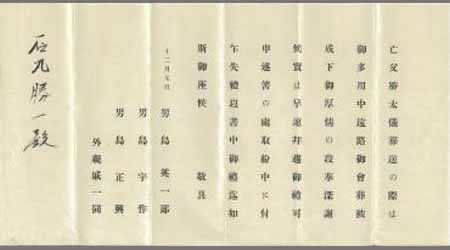 亡父勝太儀葬送の際は
御多用中遠路御會葬被
成下御厚情の段奉深謝
候實は早速拜趨御禮可
申述筈の處取紛中に付
乍失禮以書中御禮迄如
斯御座候 敬具
十二月 日
男島英一郎
男島宇作
男島正興
外親戚一同
石丸勝一殿